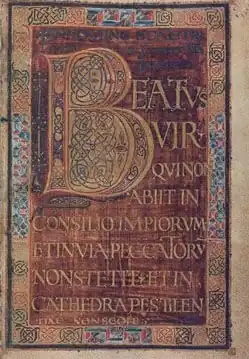 BEATVS
VIR
QVINON
ABIIT IN
CONSILIO IMPIORVM
ETINVIA PECCATORV
NONSTETIT ET IN
CATHEDRA PESTILEN
TIAE NON SEDIT